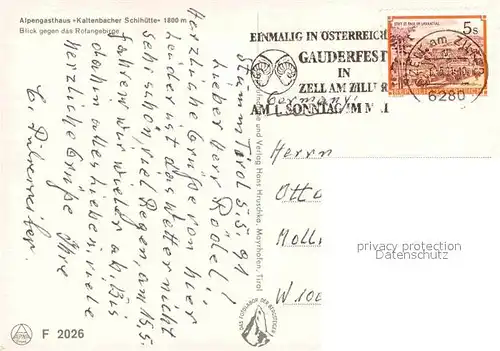 Alpengasthaus »Kaltenbacher Schihütte« 1800 m
Blick gegen das Rofangebirge
Stumm Tirol 5.5.91
Lieber Herr Rödel!
Herzliche Grüße von hier
Leider ist das Wetter nicht
sehr schön, viel Regen, am 15.5.
fahren wir wieder ab. Bis
dahin alles Liebe viele
herzliche Grüße Ihre
F 2026
und Verlag Hans Hruschka, Mayrhofen, Tirol
DAS PANORAMA DER BERGSTEIGER
EINMALIG IN ÖSTERREICH
GAUDERFEST
IN
ZELL AM ZILLER
AM 1. SONNTAG IM MAI
STIFT ST. PAUL IM LAVANTTAL
5s
6280
Germany
Herrn
Otto
W 100
privacy protection
www.ansichtskartenversand.com